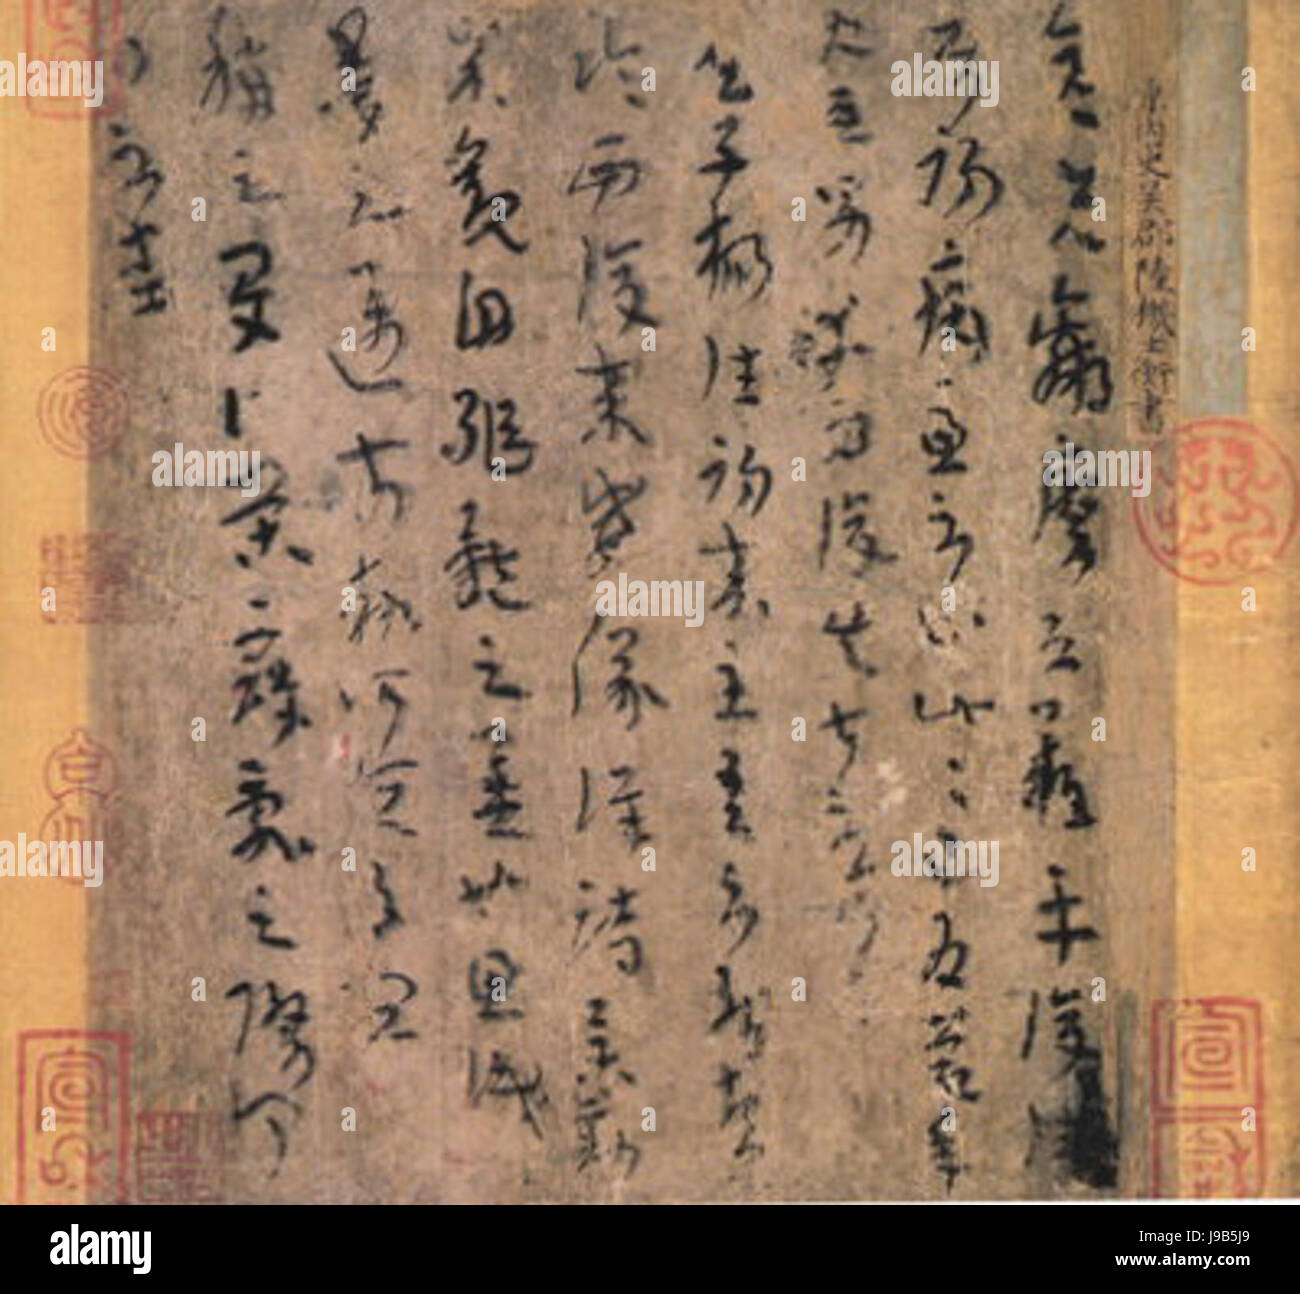 原内史吳郡陸機士衡書
彦先羸瘵恐難平復往屬
初病慮不止此此已為慶承
使唯男幸為復失前憂耳
吳子楊往初來主吾不能盡
臨西復來威儀詳跱舉動
成觀自軀體之美也思識
量之邁前執所恒有宜
稱之夏伯榮寇亂之際聞
問不悉
宣和
alamy
alamy
Image ID: J9B5J9
www.alamy.com